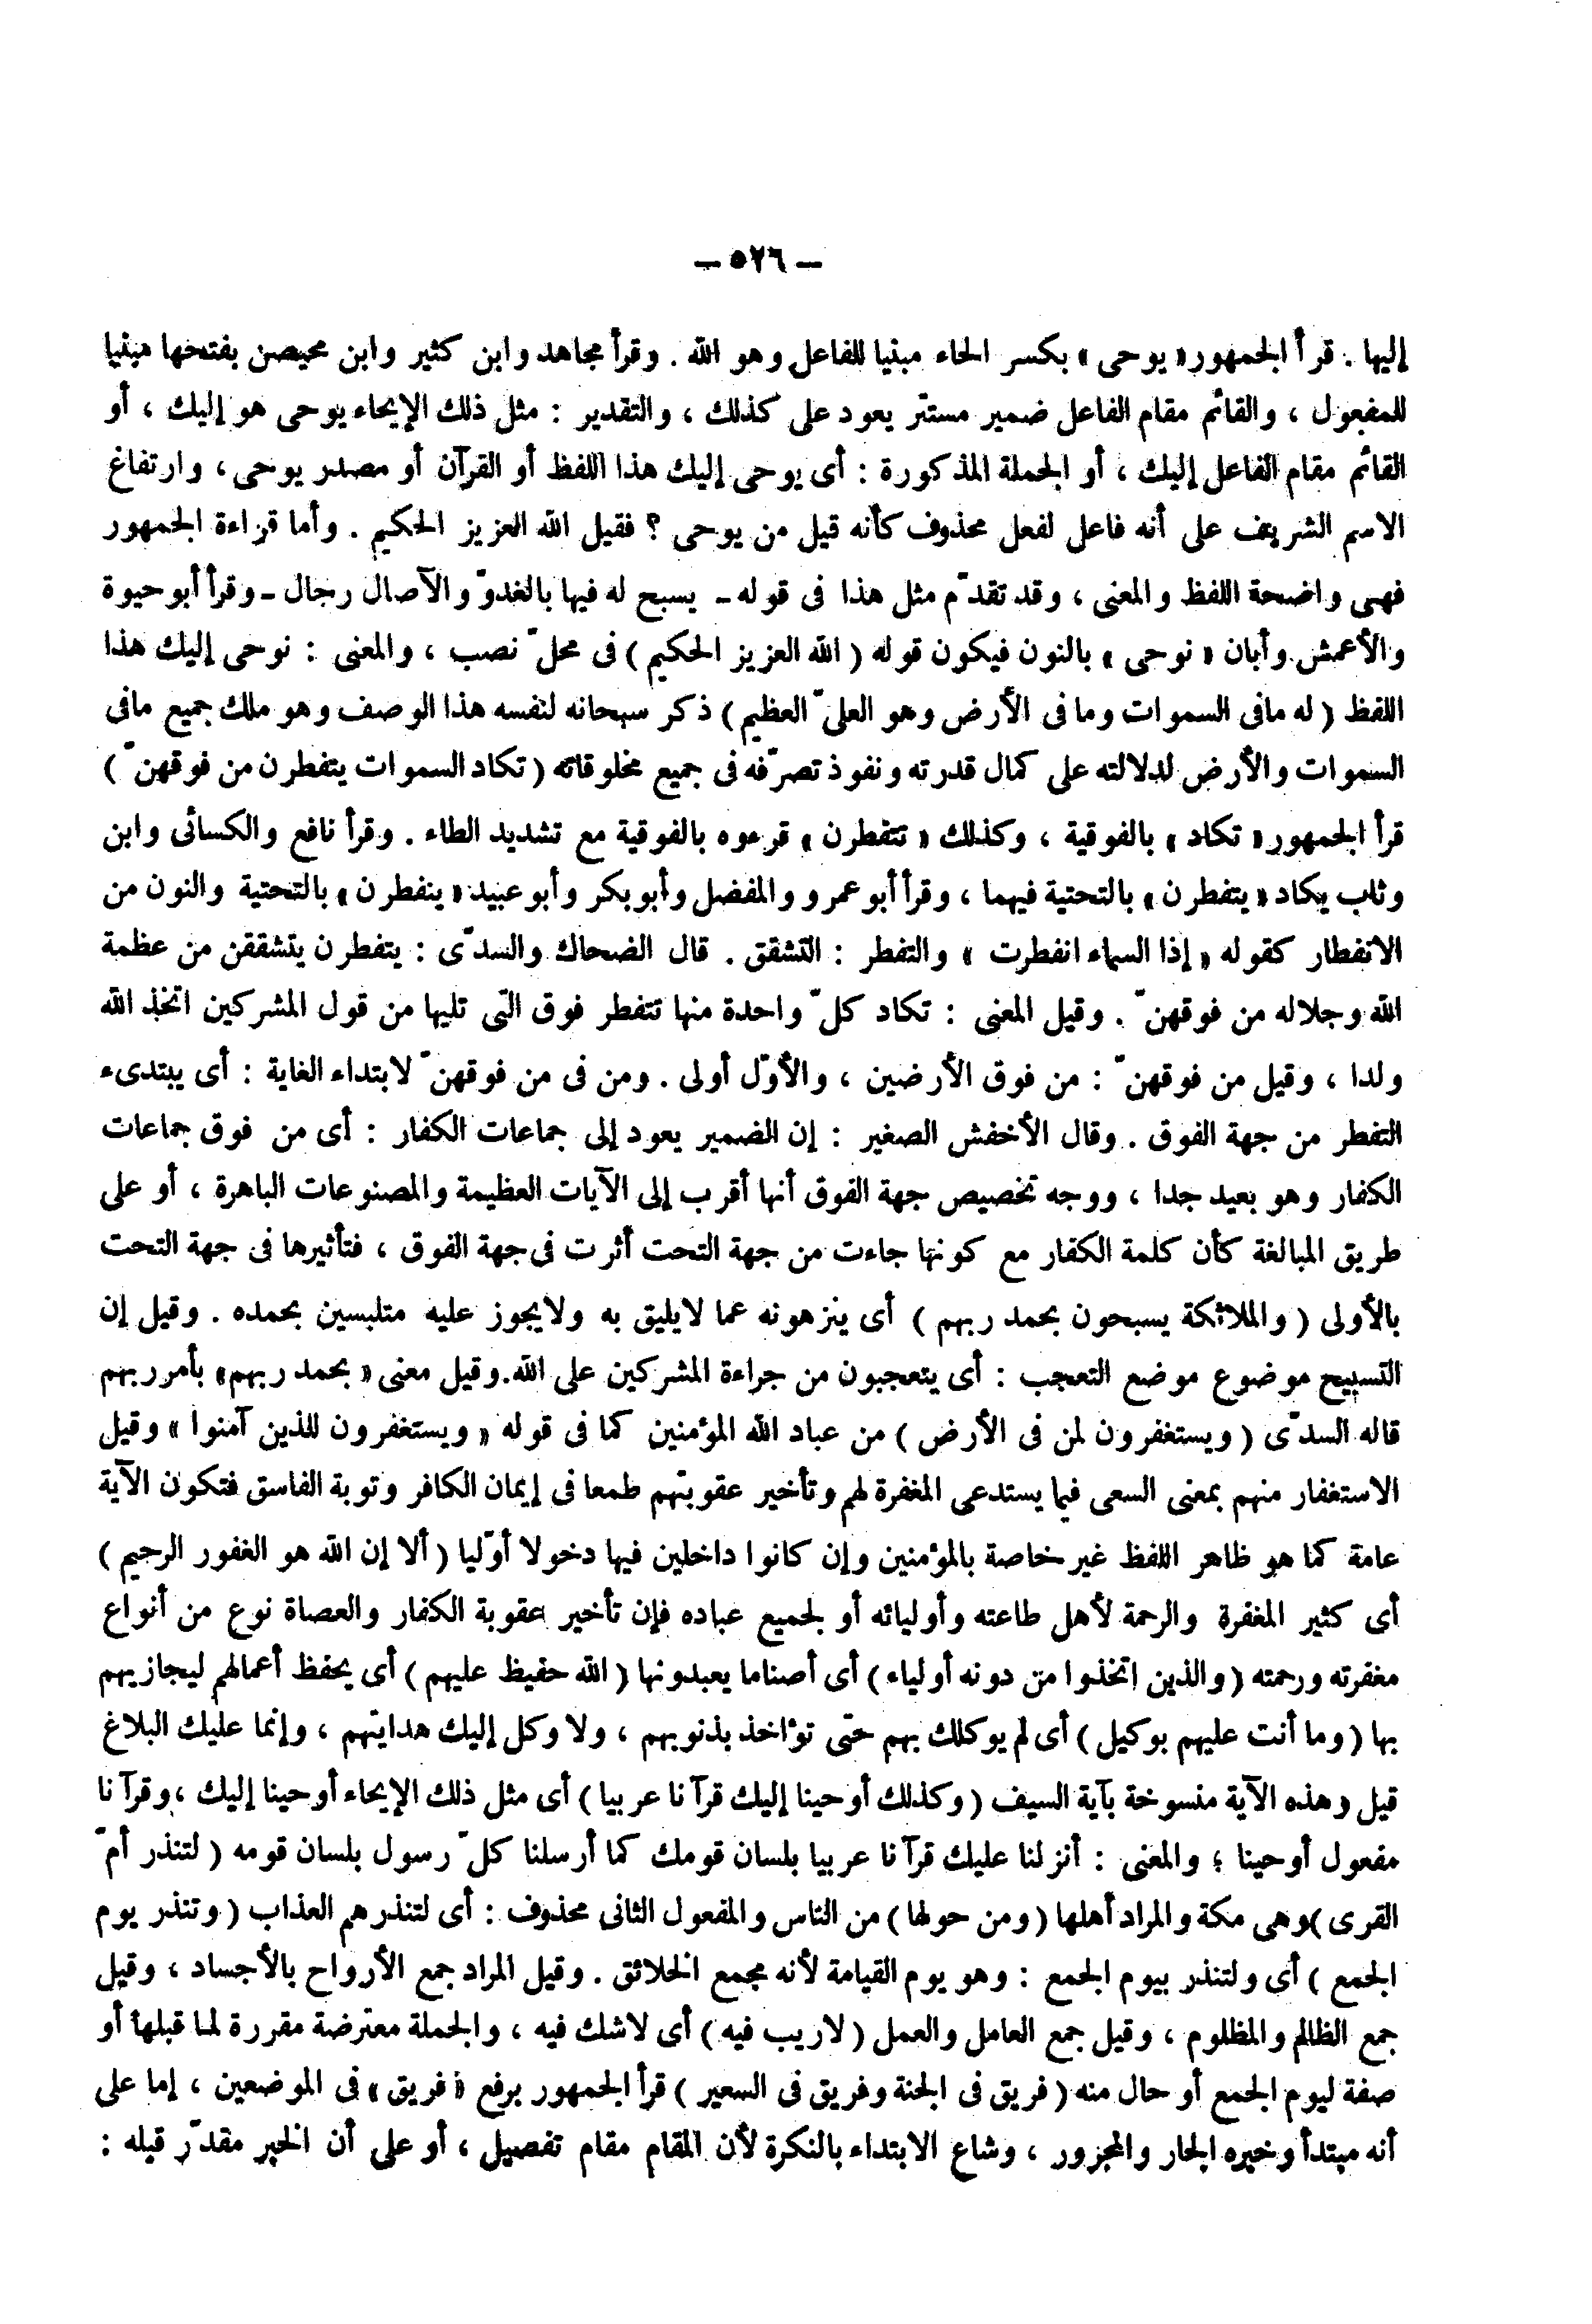 — ٥٢٦ —
إليها . قرأ الجمهور « يوحى » بكسر الحاء مبنيا للفاعل وهو الله . وقرأ مجاهد وابن كثير وابن محيصن بفتحها مبنيا
للمفعول ، والقائم مقام الفاعل ضمير مستتر يعود على كذلك ، والتقدير : مثل ذلك الإيحاء يوحى هو إليك ، أو
القائم مقام الفاعل إليك ، أو الجملة المذكورة : أى يوحى إليك هذا اللفظ أو القرآن أو مصدر يوحى ، وارتفاع
الاسم الشريف على أنه فاعل لفعل محذوف كأنه قيل من يوحى ؟ فقيل الله العزيز الحكيم . وأما قراءة الجمهور
فهى واضحة اللفظ والمعنى ، وقد تقدّم مثل هذا فى قوله ـ يسبح له فيها بالغدوّ والآصال رجال ـ وقرأ أبو حيوة
والأعمش وأبان « نوحى » بالنون فيكون قوله ( الله العزيز الحكيم ) فى محلّ نصب ، والمعنى : نوحى إليك هذا
اللفظ ( له مافى السموات وما فى الأرض وهو العلىّ العظيم ) ذكر سبحانه لنفسه هذا الوصف وهو ملك جميع مافى
السموات والأرض لدلالته على كمال قدرته ونفوذ تصرّفه فى جميع مخلوقاته ( تكاد السموات يتفطرن من فوقهنّ )
قرأ الجمهور « تكاد » بالفوقية ، وكذلك « تتفطرن » قرءوه بالفوقية مع تشديد الطاء . وقرأ نافع والكسائى وابن
وثاب يكاد « يتفطرن » بالتحتية فيهما ، وقرأ أبو عمرو والمفضل وأبوبكر وأبو عبيد « ينفطرن » بالتحتية والنون من
الانفطار كقوله « إذا السماء انفطرت » والتفطر : التشقق . قال الضحاك والسدّى : يتفطرن يتشققن من عظمة
الله وجلاله من فوقهنّ . وقيل المعنى : تكاد كلّ واحدة منها تتفطر فوق التى تليها من قول المشركين اتخذ الله
ولدا ، وقيل من فوقهنّ : من فوق الأرضين ، والأوّل أولى . ومن فى من فوقهنّ لابتداء الغاية : أى يبتدىء
التفطر من جهة الفوق . وقال الأخفش الصغير : إن الضمير يعود إلى جماعات الكفار : أى من فوق جماعات
الكفار وهو بعيد جدا ، ووجه تخصيص جهة الفوق أنها أقرب إلى الآيات العظيمة والمصنوعات الباهرة ، أو على
طريق المبالغة كأن كلمة الكفار مع كونها جاءت من جهة التحت أثرت فى جهة الفوق ، فتأثيرها فى جهة التحت
بالأولى ( والملائكة يسبحون بحمد ربهم ) أى ينزهونه عما لايليق به ولايجوز عليه متلبسين بحمده . وقيل إن
التسبيح موضوع موضع التعجب : أى يتعجبون من جراءة المشركين على الله . وقيل معنى « بحمد ربهم » بأمر ربهم
قاله السدّى ( ويستغفرون لمن فى الأرض ) من عباد الله المؤمنين كما فى قوله « ويستغفرون للذين آمنوا » وقيل
الاستغفار منهم بمعنى السعى فيما يستدعى المغفرة لهم وتأخير عقوبتهم طمعا فى إيمان الكافر وتوبة الفاسق فتكون الآية
عامة كما هو ظاهر اللفظ غير خاصة بالمؤمنين وإن كانوا داخلين فيها دخولا أوّليا ( ألا إن الله هو الغفور الرحيم )
أى كثير المغفرة والرحمة لأهل طاعته وأوليائه أو لجميع عباده فإن تأخير عقوبة الكفار والعصاة نوع من أنواع
مغفرته ورحمته ( والذين اتخذوا من دونه أولياء ) أى أصناما يعبدونها ( الله حفيظ عليهم ) أى يحفظ أعمالهم ليجازيهم
بها ( وما أنت عليهم بوكيل ) أى لم يوكلك بهم حتى تؤاخذ بذنوبهم ، ولا وكل إليك هدايتهم ، وإنما عليك البلاغ
قيل وهذه الآية منسوخة بآية السيف ( وكذلك أوحينا إليك قرآنا عربيا ) أى مثل ذلك الإيحاء أوحينا إليك ، وقرآنا
مفعول أوحينا ؛ والمعنى : أنزلنا عليك قرآنا عربيا بلسان قومك كما أرسلنا كلّ رسول بلسان قومه ( لتنذر أمّ
القرى ) وهى مكة والمراد أهلها ( ومن حولها ) من الناس والمفعول الثانى محذوف : أى لتنذرهم العذاب ( وتنذر يوم
الجمع ) أى ولتنذر بيوم الجمع : وهو يوم القيامة لأنه مجمع الخلائق . وقيل المراد جمع الأرواح بالأجساد ، وقيل
جمع الظالم والمظلوم ، وقيل جمع العامل والعمل ( لاريب فيه ) أى لاشك فيه ، والجملة معترضة مقررة لما قبلها أو
صفة ليوم الجمع أو حال منه ( فريق فى الجنة وفريق فى السعير ) قرأ الجمهور برفع « فريق » فى الموضعين ، إما على
أنه مبتدأ وخبره الجار والمجرور ، وشاع الابتداء بالنكرة لأن المقام مقام تفصيل ، أو على أن الخبر مقدّر قبله :